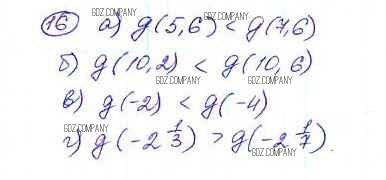 16 а) g(5,6) < g(7,6)
б) g(10,2) < g(10,6)
в) g(-2) < g(-4)
г) g(-2 1/3) > g(-2 1/7).
GDZ.COMPANY
GDZ.COMPANY
GDZ.COMPANY
GDZ.COMPANY
GDZ.COMPANY
GDZ.COMPANY
GDZ.COMPANY
GDZ.COMPANY